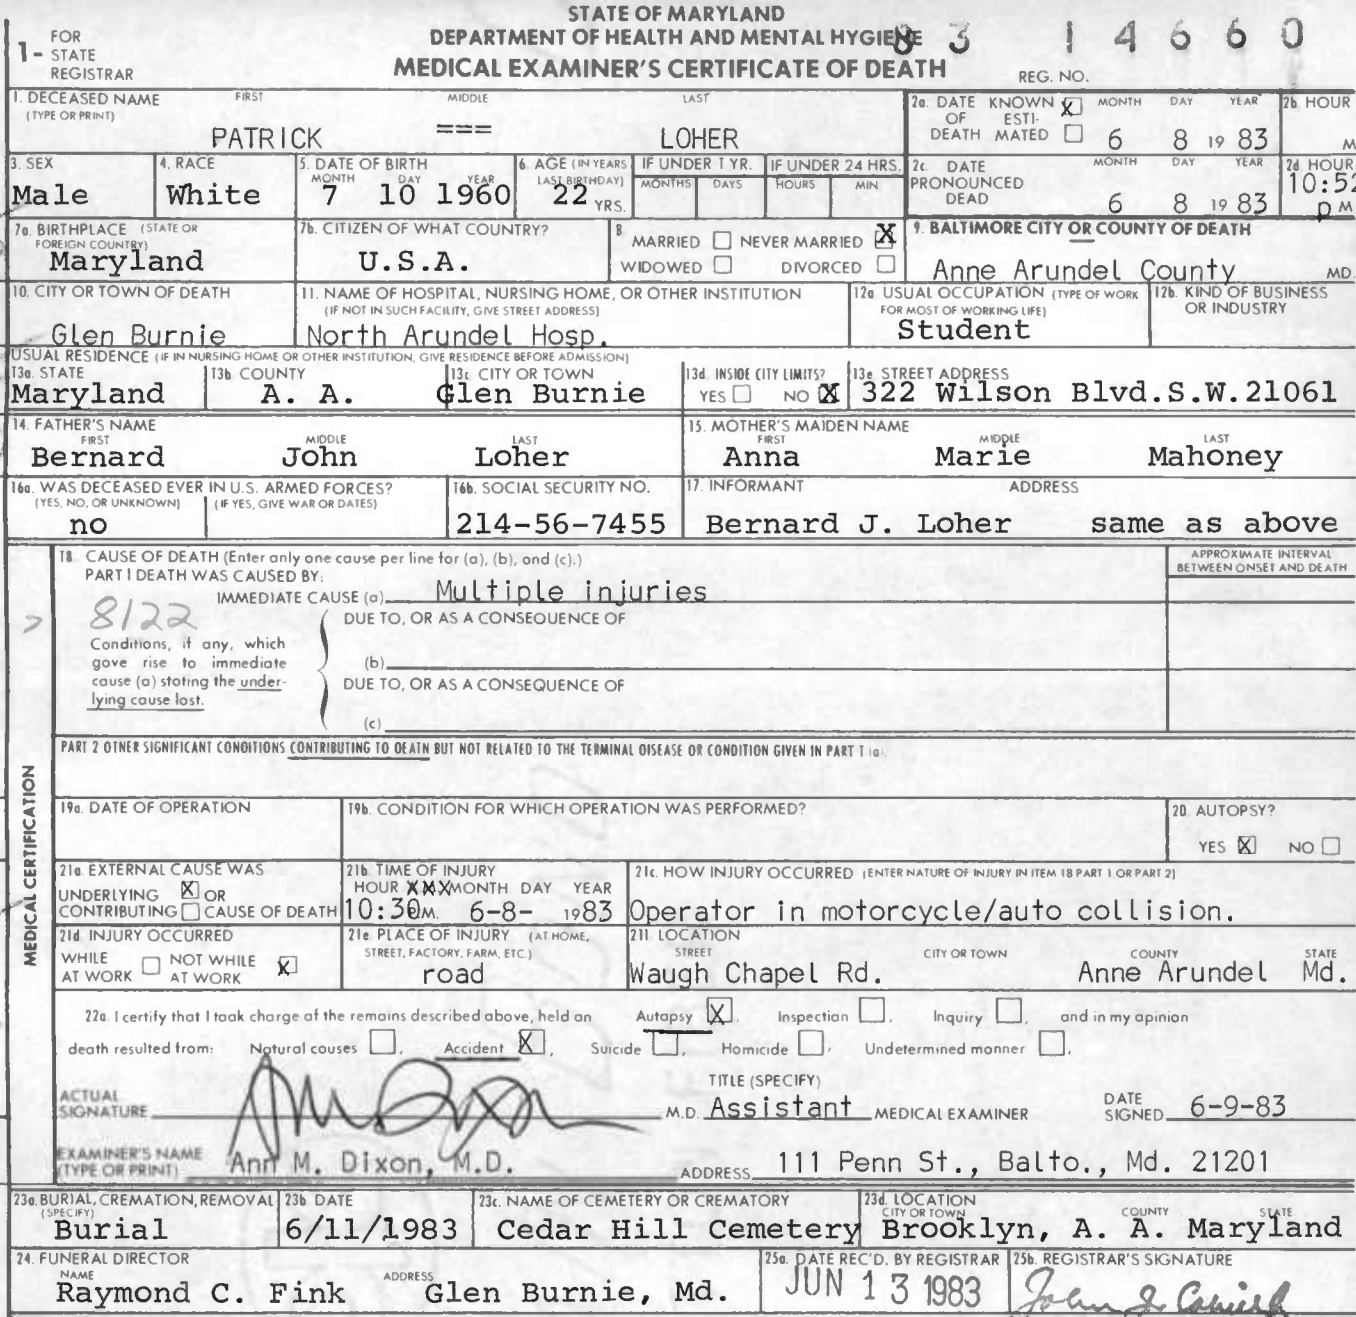 STATE OF MARYLAND
DEPARTMENT OF HEALTH AND MENTAL HYGIENE
MEDICAL EXAMINER'S CERTIFICATE OF DEATH
83 14660
REG. NO.
1- FOR STATE REGISTRAR
1. DECEASED NAME (TYPE OR PRINT) FIRST MIDDLE LAST
PATRICK === LOHER
2a. DATE OF DEATH KNOWN X ESTIMATED MONTH DAY YEAR
6 8 19 83
2b HOUR M
3. SEX
Male
4. RACE
White
5. DATE OF BIRTH MONTH DAY YEAR
7 10 1960
6. AGE (IN YEARS LAST BIRTHDAY)
22 YRS.
IF UNDER 1 YR. MONTHS DAYS
IF UNDER 24 HRS. HOURS MIN
2c. DATE PRONOUNCED DEAD MONTH DAY YEAR
6 8 19 83
2d HOUR
10:52 p M
7a. BIRTHPLACE (STATE OR FOREIGN COUNTRY)
Maryland
7b. CITIZEN OF WHAT COUNTRY?
U.S.A.
8. MARRIED NEVER MARRIED X
WIDOWED DIVORCED
9. BALTIMORE CITY OR COUNTY OF DEATH
Anne Arundel County MD.
10. CITY OR TOWN OF DEATH
Glen Burnie
11. NAME OF HOSPITAL, NURSING HOME, OR OTHER INSTITUTION
(IF NOT IN SUCH FACILITY, GIVE STREET ADDRESS)
North Arundel Hosp.
12a USUAL OCCUPATION (TYPE OF WORK FOR MOST OF WORKING LIFE)
Student
12b. KIND OF BUSINESS OR INDUSTRY
USUAL RESIDENCE (IF IN NURSING HOME OR OTHER INSTITUTION, GIVE RESIDENCE BEFORE ADMISSION)
13a. STATE
Maryland
13b COUNTY
A. A.
13c CITY OR TOWN
Glen Burnie
13d. INSIDE CITY LIMITS?
YES NO X
13e STREET ADDRESS
322 Wilson Blvd.S.W.21061
14. FATHER'S NAME FIRST MIDDLE LAST
Bernard John Loher
15. MOTHER'S MAIDEN NAME FIRST MIDDLE LAST
Anna Marie Mahoney
16a. WAS DECEASED EVER IN U.S. ARMED FORCES?
(YES, NO, OR UNKNOWN) (IF YES, GIVE WAR OR DATES)
no
16b. SOCIAL SECURITY NO.
214-56-7455
17. INFORMANT ADDRESS
Bernard J. Loher same as above
MEDICAL CERTIFICATION
18 CAUSE OF DEATH (Enter only one cause per line for (a), (b), and (c).)
APPROXIMATE INTERVAL BETWEEN ONSET AND DEATH
PART I DEATH WAS CAUSED BY:
IMMEDIATE CAUSE (a) Multiple injuries
8122
DUE TO, OR AS A CONSEQUENCE OF
Conditions, if any, which
gave rise to immediate
cause (a) stating the under-
lying cause last.
(b)
DUE TO, OR AS A CONSEQUENCE OF
(c)
PART 2 OTHER SIGNIFICANT CONDITIONS CONTRIBUTING TO DEATH BUT NOT RELATED TO THE TERMINAL DISEASE OR CONDITION GIVEN IN PART 1 (a).
19a. DATE OF OPERATION
19b. CONDITION FOR WHICH OPERATION WAS PERFORMED?
20 AUTOPSY?
YES X NO
21a EXTERNAL CAUSE WAS
UNDERLYING X OR
CONTRIBUTING CAUSE OF DEATH
21b TIME OF INJURY
HOUR XXX MONTH DAY YEAR
10:30 M. 6-8- 1983
21c. HOW INJURY OCCURRED (ENTER NATURE OF INJURY IN ITEM 18 PART 1 OR PART 2)
Operator in motorcycle/auto collision.
21d INJURY OCCURRED
WHILE AT WORK NOT WHILE AT WORK X
21e PLACE OF INJURY (AT HOME, STREET, FACTORY, FARM, ETC.)
road
21f. LOCATION STREET CITY OR TOWN COUNTY STATE
Waugh Chapel Rd. Anne Arundel Md.
22a I certify that I took charge of the remains described above, held an Autopsy X, Inspection , Inquiry , and in my opinion
death resulted from: Natural causes , Accident X, Suicide , Homicide , Undetermined manner .
ACTUAL SIGNATURE Ann Dixon M.D.
TITLE (SPECIFY)
Assistant MEDICAL EXAMINER
DATE SIGNED 6-9-83
EXAMINER'S NAME (TYPE OR PRINT) Ann M. Dixon, M.D.
ADDRESS 111 Penn St., Balto., Md. 21201
23a. BURIAL, CREMATION, REMOVAL (SPECIFY)
Burial
23b DATE
6/11/1983
23c. NAME OF CEMETERY OR CREMATORY
Cedar Hill Cemetery
23d. LOCATION CITY OR TOWN COUNTY STATE
Brooklyn, A. A. Maryland
24. FUNERAL DIRECTOR
NAME ADDRESS
Raymond C. Fink Glen Burnie, Md.
25a. DATE REC'D. BY REGISTRAR
JUN 13 1983
25b. REGISTRAR'S SIGNATURE
John